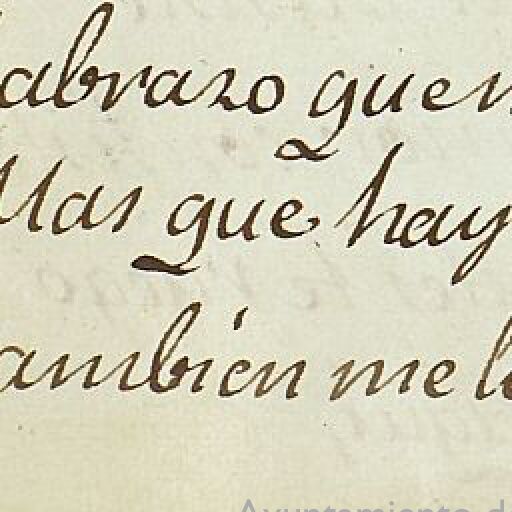 abrazo quer
Mas que hay
ambien me le
Ayuntamiento de